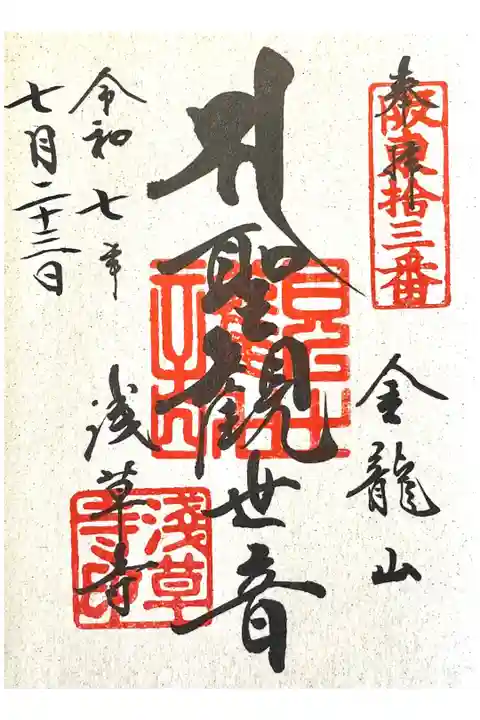 奉拝
阪東拾三番
金龍山
聖観世音
浅草寺
淺草寺印
令和七年
七月二十三日